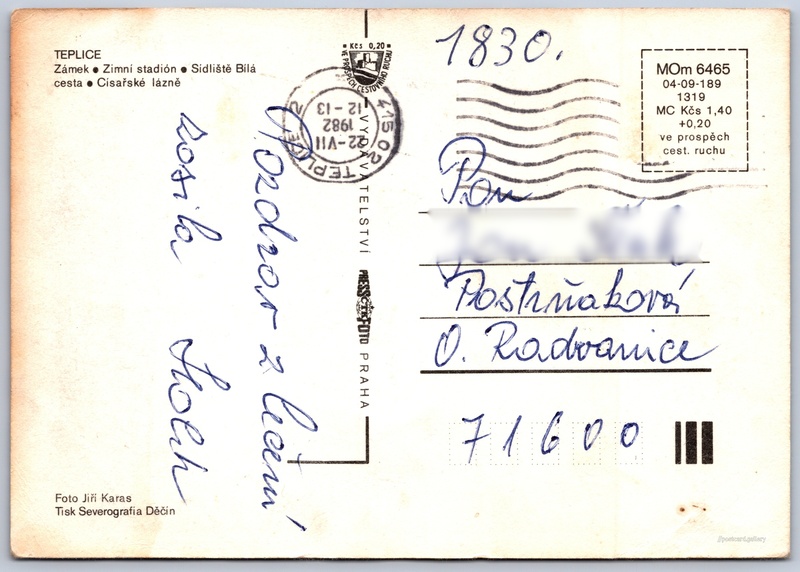 TEPLICE
Zámek ● Zimní stadión ● Sídliště Bílá
cesta ● Císařské lázně
Pozdrav z léčení
zosila
Foto Jiří Karas
Tisk Severografia Děčín
Kčs 0,20
VE PROSPĚCH CESTOVNÍHO RUCHU
415 02
TEPLICE 2
22-VII
1982
12-13
VYDAVATELSTVÍ
PRESSFOTO
PRAHA
1830.
MOm 6465
04-09-189
1319
MC Kčs 1,40
+0,20
ve prospěch
cest. ruchu
Pan
Postrňáková
O. Radvanice
71600